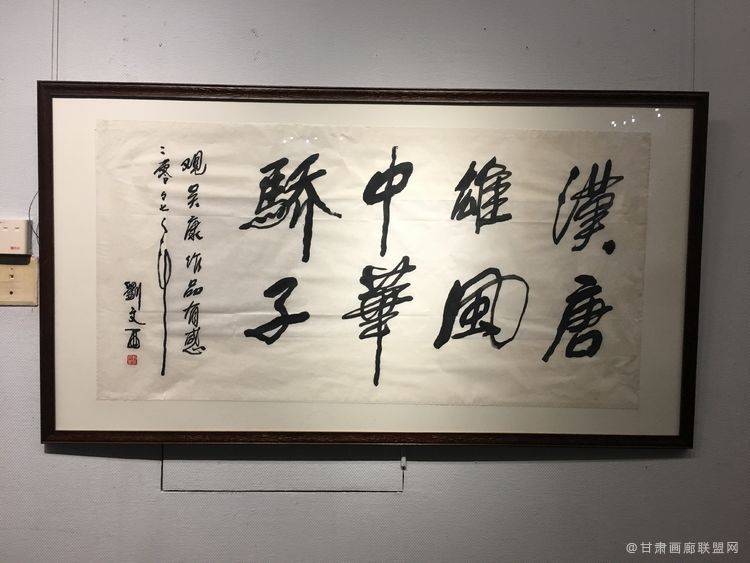 漢唐
雄風
中華
驕子
观吴康作品有感
二零
劉文西
@甘肃画廊联盟网